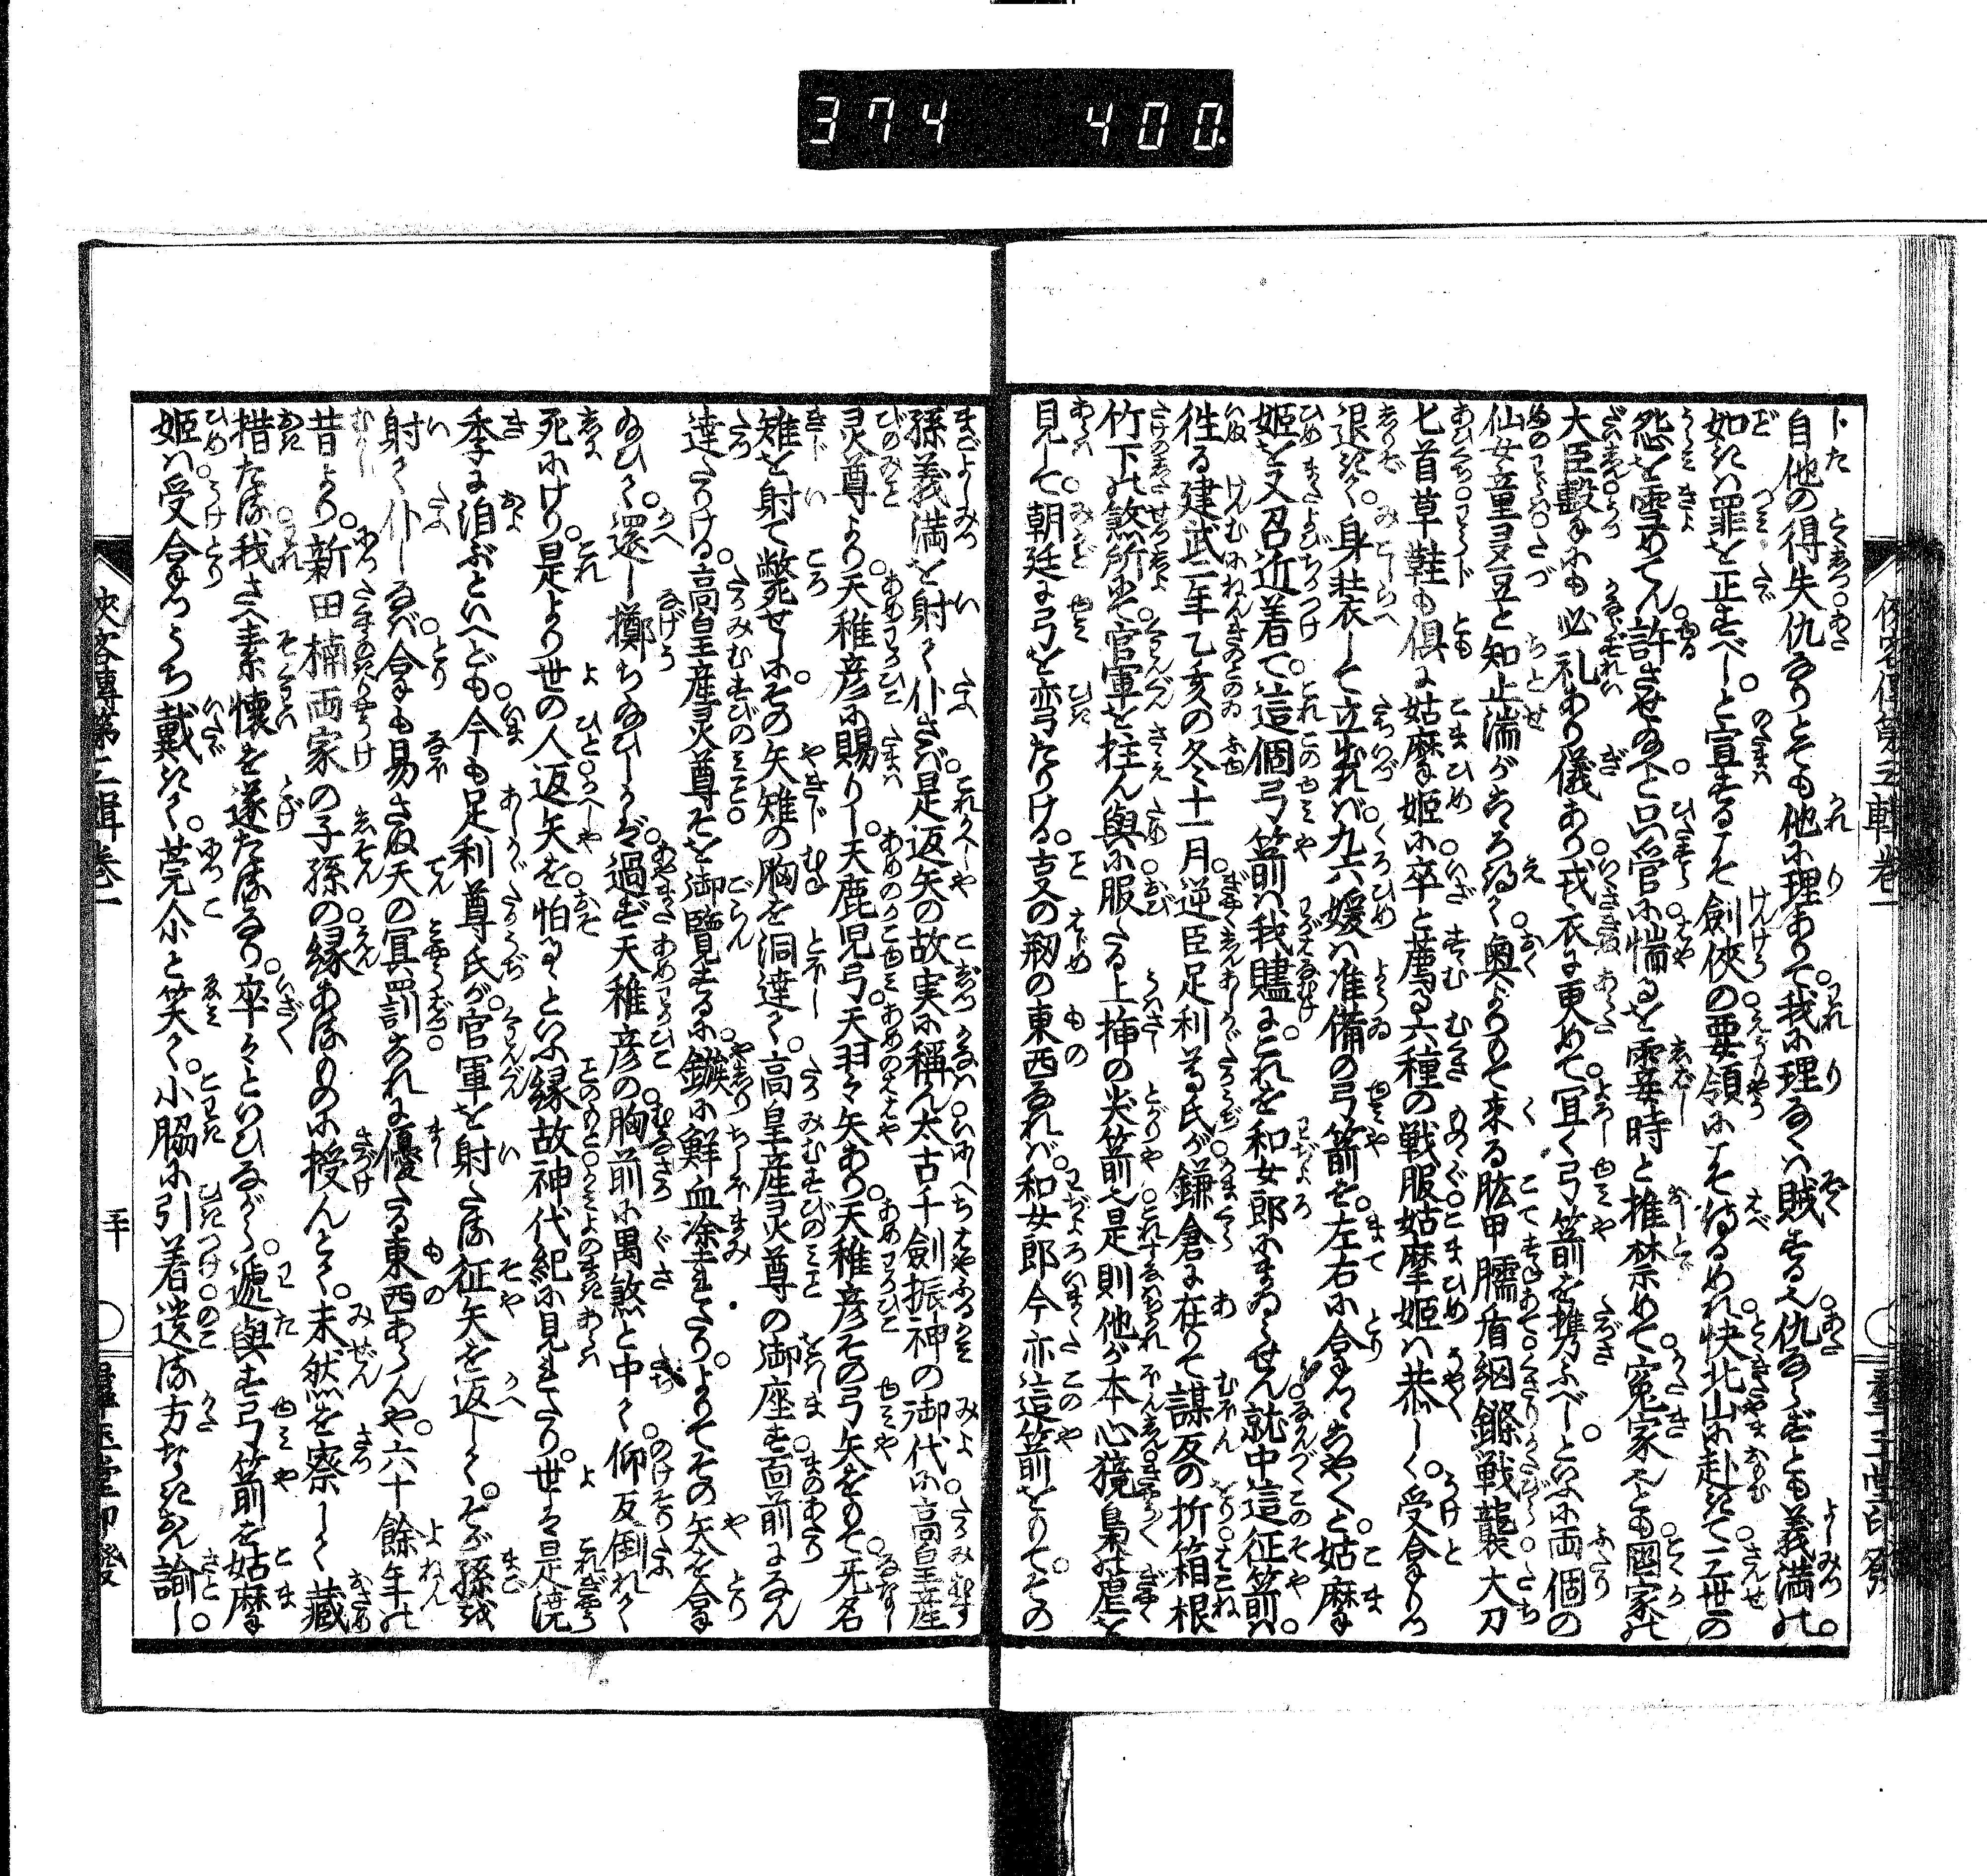 374 400.
自他の得失仇なりとても他に理ありて。我に理なくは賊なるべし。仇ならずとも義満の。
如きは罪を正すべしと宣するこそ劍俠の要領にこそ侍るめれ快北山に赴きて三世の
怨を雪めてん許させ給へと只管に惴るを霎時と推禁めて。寃家ども國家の
大臣擊にも必礼あり儀あり戎衣に更めて宜く弓箭を携ふべしといふに両個の
仙女童叟豆と知止湍がこゝろ得て奥よりもて来る肱甲臑盾綑鏁戦襲大刀
匕首草鞋も俱に姑摩姫に卒と薦る六種の戦服姑摩姫は恭しく。受拿りつ
退きて。身装して立出れば九六媛は准備の弓箭を。左右に拿つゝはやくと姑摩
姫を又召近着て。這個弓箭は我贐に。これを和女郎にまゐらせん就中這征箭は。
往る建武二年乙亥の冬十一月逆臣足利尊氏が鎌倉に在りて謀反の折箱根
竹下の煞所にて官軍を拄ん與に服たる上挿の尖箭也是則他が本心獍梟の虐を
見して朝廷に弓を彎たりける。古又の靱の東西なれば。和女郎今亦這箭をとりて。その
孫義満を射て仆さば。是返矢の故実に稱ん太古千劍振神の御代に。高皇産
灵尊より天稚彦に賜りし。天鹿児弓。天羽々矢あり。天稚彦その弓矢をもて旡名
雉を射て斃せしに。その矢雉の胸を洞達て。高皇産灵尊の御座す面前になん
達たりける。高皇産灵尊そを御覽するに。鏃に鮮血塗れたり。よりてその矢を拿
給ひて。還し擲ち給ひしかば。過ず天稚彦の胸前に禺煞と中て仰反倒れて
死にけり。是より世の人返矢を怕るゝといふ縁故神代紀に見えたり。世は是澆
季に泊ぶといへども今も足利尊氏が。官軍を射たる征矢を返して。そが孫を
射て仆しなば。拿も易さぬ天の冥罰これに優たる東西あらんや。六十餘年の
昔より。新田楠両家の子孫の縁あるものに授んとて。未然を察して藏
措たる我さへ素懐を遂たるなり。卒々といひながら。遞與す弓箭を姑摩
姫は受拿つゝうち戴きて。莞尒と笑て。小腦に引着遺る方なき志諭し。
俠客傳第二輯卷一